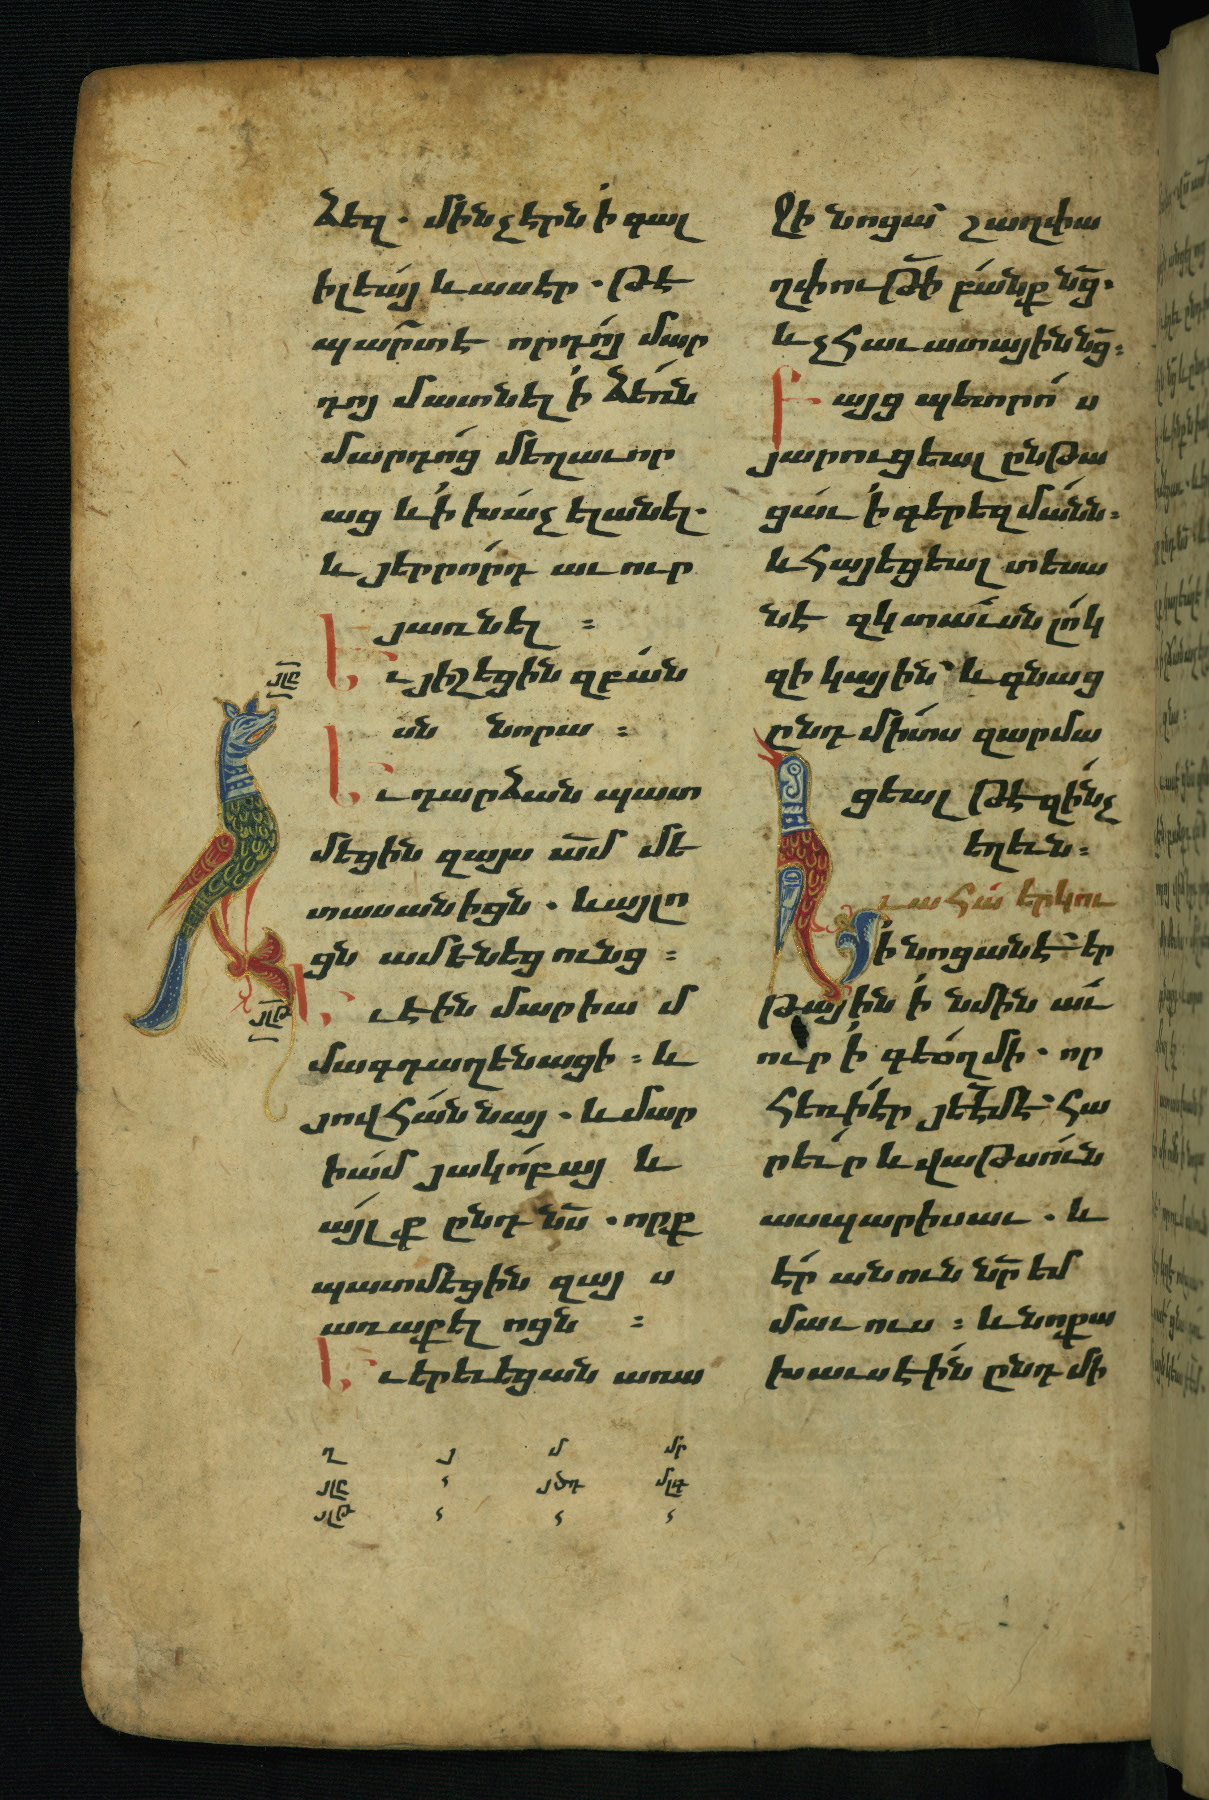 ձեզ. մինչ էրն ի գալ
իլեայ և ասէր. թէ
պարտ է որդոյ մար
դոյ մատնել ի ձեռն
մարդոց մեղաւոր
աց և ի խաչ ելանել.
և յերրորդ աւուր
յառնել :
Եւ յիշեցին զբան
սն նորա :
Եւ դարձան պատ
մեցին զայս ամ մե
տասանիցն. և այլո
ցն ամենեցունց :
Եւ էին մարիամ
մագդաղենացի : և
յովհաննայ. և մար
իամ յակոբայ և
այլք ընդ նս. որք
պատմեցին զայս
առաքելոցն :
Եւ երևեցան առա
ջի նոցա շաղփա
ղփութի բանք նց.
և չհաւատային նց :
Բայց պետրոս
յարուցեալ ընթա
ցաւ ի գերեզմանն :
և հայեցեալ տեսա
նէ զկտաւսն լոկ
զի կային և գնաց
ընդ միտս զարմա
ցեալ թէ զինչ
եղեւն :
Եւ ահա երկու
ի նոցանէ եր
թային ի նմին աւ
ուր ի գեօղ մի. որ
հեռի էր յեէմէ հա
րեւր և վաթսուն
ասպարիսաւ. և
էր անուն նր եմ
մաւուս : և նոքա
խաւսէին ընդ մի
յլը
յլթ
ղ յ մ մր
յլը յծդ մլգ
յլթ